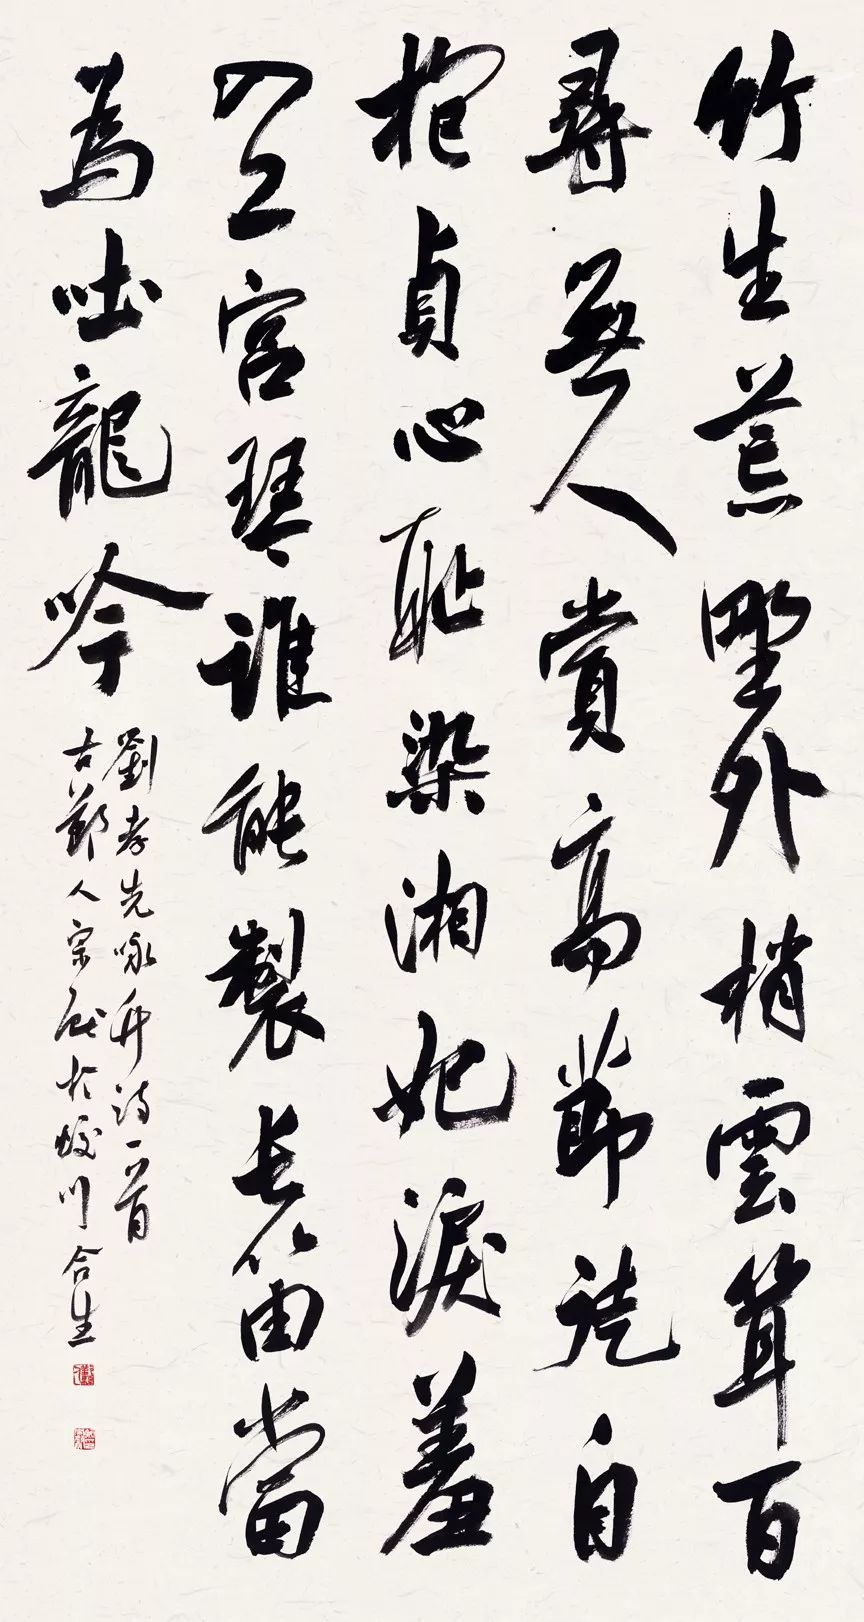 竹生荒野外梢雲耸百
尋無人賞高節徒自
抱貞心耻染湘妃淚羞
入上宫琴誰能製長笛當
為吐龍吟
劉孝先咏竹詩一首
古鄞人宗於蛟川合生